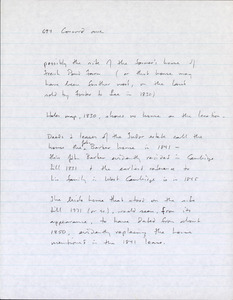 697 Concord Ave
possibly the site of the farmer's house of
Fresh Pond Farm (or that house may
have been further east, on the land
sold by Foster to Lee in 1850)
Wales map, 1830, shows no house on the location.
Deeds & leases of the Tudor estate call the
house the John Barker house in 1841 -
this John Barker evidently resided in Cambridge
till 1851 & the earliest reference to
his family in West Cambridge is in 1855
The Wilde house that stood on the site
till 1971 (or so), would seem, from its
appearance, to have dated from about
1850, evidently replacing the house
mentioned in the 1841 lease.